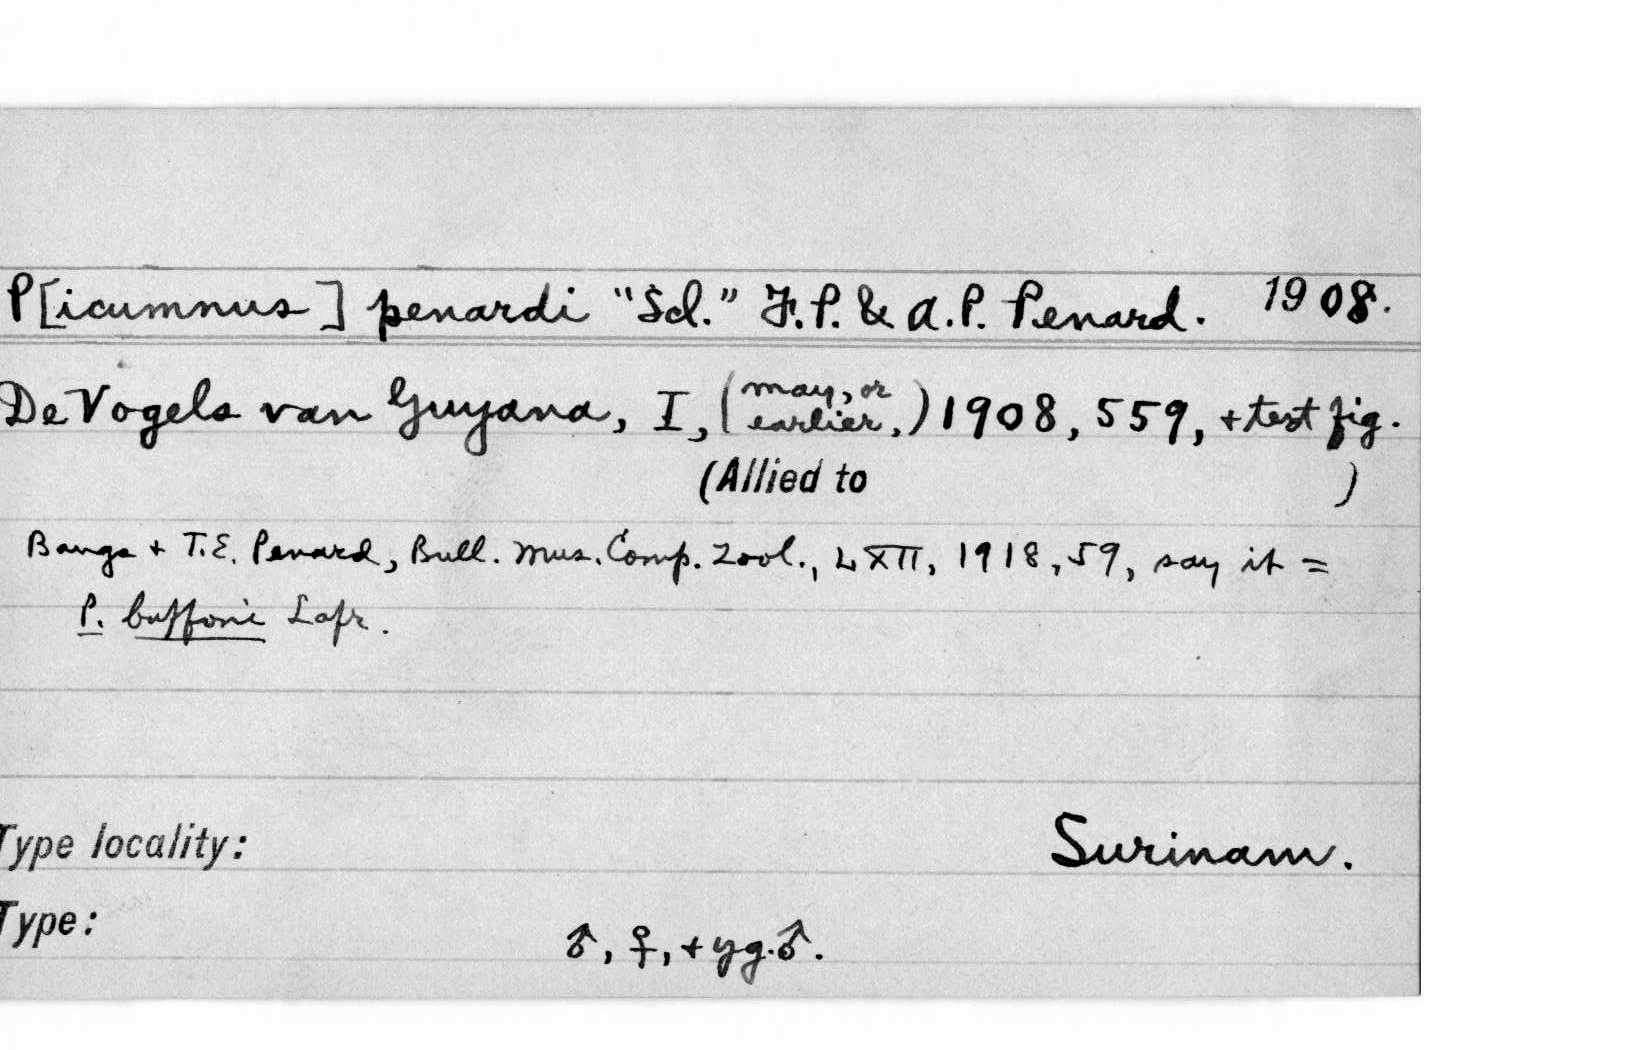 P[icumnus] penardi "Scl." F.P. & A.P. Penard. 1908.
De Vogels van Guyana, I, (may, or earlier,) 1908, 559, + text fig.
(Allied to )
Bangs + T.E. Penard, Bull. Mus. Comp. Zool., LXII, 1918, 59, say it =
P. buffoni Lafr.
Type locality: Surinam.
Type: ♂, ♀, + yg. ♂.